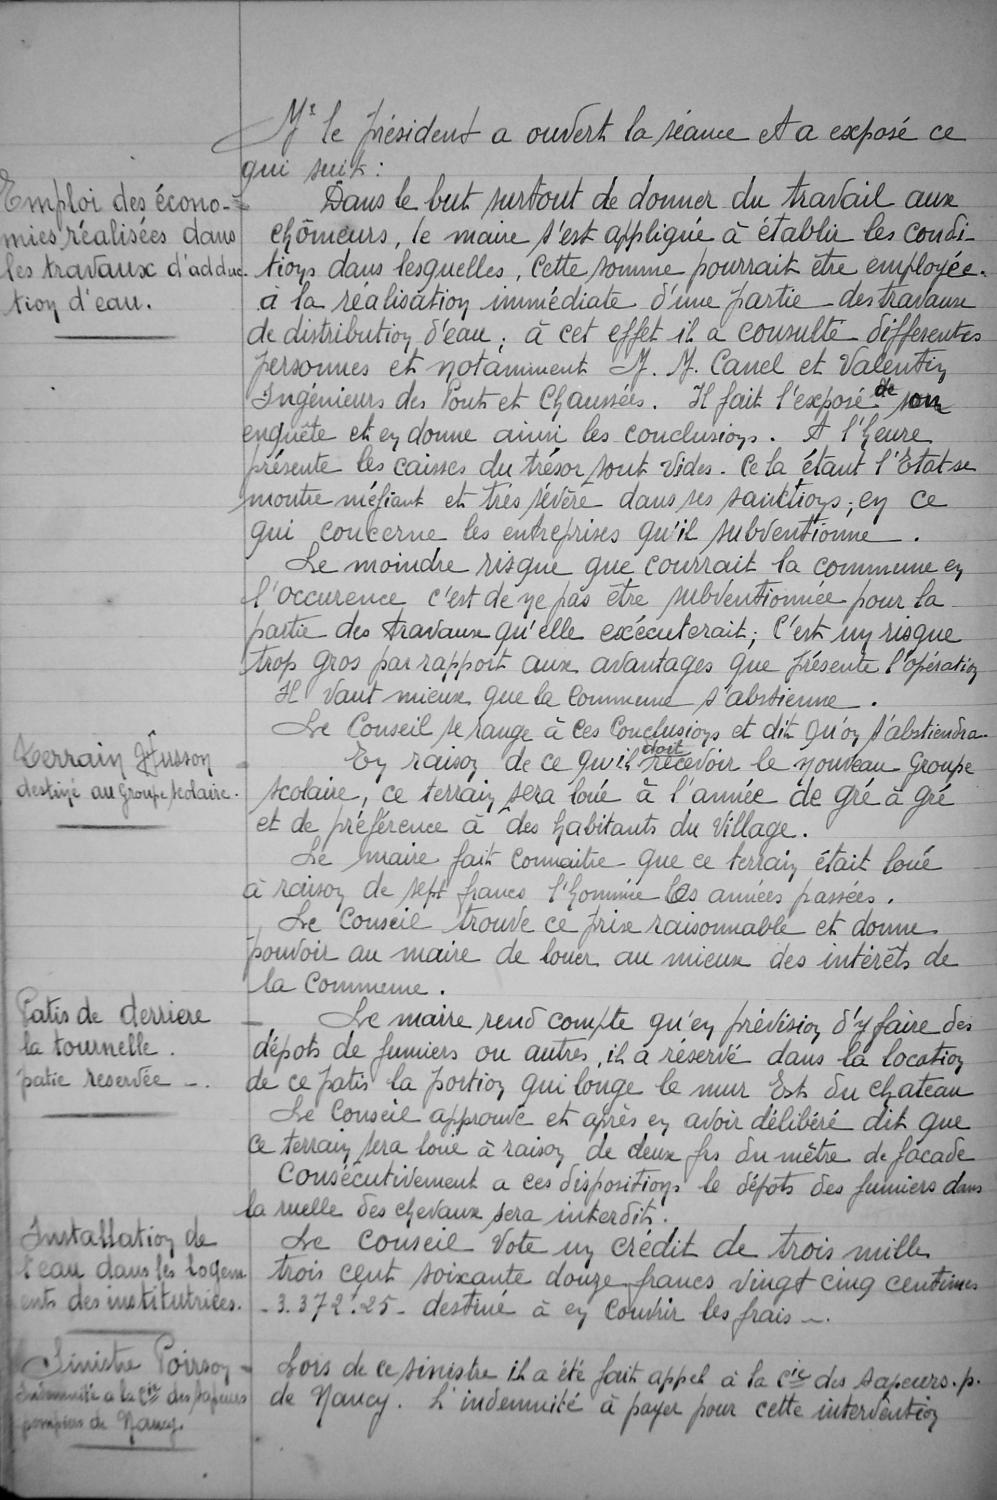 Mr le président a ouvert la séance et a exposé ce
qui suit :
Emploi des écono-
mies réalisées dans
les travaux d'adduc-
tion d'eau.
Dans le but surtout de donner du travail aux
chômeurs, le maire s'est appliqué à établir les condi-
tions dans lesquelles, cette somme pourrait être employée
à la réalisation immédiate d'une partie des travaux
de distribution d'eau ; à cet effet il a consulté differentes
personnes et notamment M. M. Canel et Valentin
Ingénieurs des Ponts et Chaussées. Il fait l'exposé de son
enquête et en donne ainsi les conclusions. A l'heure
présente les caisses du trésor sont vides. Cela étant l'Etat se
montre méfiant et très sévère dans ses sanctions ; en ce
qui concerne les entreprises qu'il subventionne.
Le moindre risque que courrait la commune en
l'occurence c'est de ne pas être subventionnée pour la
partie des travaux qu'elle exécuterait ; C'est un risque
trop gros par rapport aux avantages que présente l'opération
Il vaut mieux que la commune s'abstienne.
Le Conseil se range à ces Conclusions et dit qu'on s'abstiendra.
Terrain Husson
destiné au Groupe scolaire.
En raison de ce qu'il doit recevoir le nouveau Groupe
scolaire, ce terrain sera loué à l'année de gré à gré
et de préférence à des habitants du Village.
Le maire fait connaitre que ce terrain était loué
à raison de sept francs l'hommée les années passées.
Le Conseil trouve ce prix raisonnable et donne
pouvoir au maire de louer au mieux des intérêts de
la Commune.
Patis de derriere
la tournelle.
patie reservée -.
Le maire rend compte qu'en prévision d'y faire des
dépots de fumiers ou autres, il a réservé dans la location
de ce patis la portion qui longe le mur Est du chateau
Le Conseil approuve et après en avoir délibéré dit que
ce terrain sera loué à raison de deux frs du mètre de façade
Consécutivement a ces dispositions le dépots des fumiers dans
la ruelle des chevaux sera interdit.
Installation de
l'eau dans les logem
ents des institutrices.
Le Conseil vote un crédit de trois mille
trois cent soixante douze francs vingt cinq centimes
- 3.372f.25 - destiné à en couvrir les frais -.
Sinistre Poirson
Indemnité a la Cie des sapeurs
pompiers de Nancy.
Lors de ce sinistre il a été fait appel à la Cie des sapeurs. p.
de Nancy. L'indemnité à payer pour cette intervention